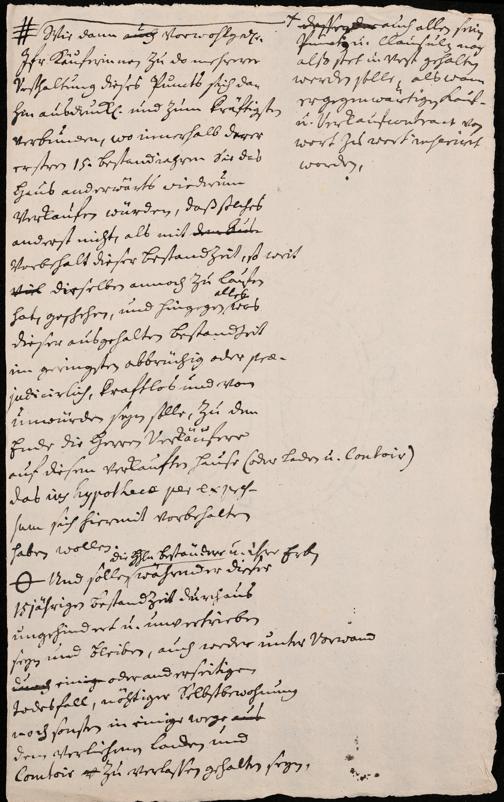 # Wie dann auch Vorwohlged.
Ihr Käuferinnen zu do mehrerer
Vesthaltung dieses Puncts sich dan
hin ausdrückl. und zum kräfftigsten
verbunden, wo innerhalb derer
ersten 15. bestandjahren Sie das
Hauß anderwärts wiederum
Verkaufen würden, daß solches
anderst nicht, als mit
Vorbehalt dieser bestandzeit, so weit
viel dieselben annoch zu lauffen
hat, geschehen, und hingegen alles was
dieser ausgehalten bestandtzeit
im geringsten abbrüchig oder præ-
judicirlich, kraftlos und von
unwürden seyn solle, zu dem
Ende die Herren Verkäufere
auf diesem verkauften Hause (oder Laden u. Contoir)
das ius hypothecæ per expres-
sum sich hiermit vorbehalten
haben wollen.
Und sollen die Hln beständere u. ihre Erb
währender dieser
15jährigen bestandzeit durchaus
ungehindert u. unvertrieben
seyn und bleiben, auch weder unter Vorwand
einig oder anderseitigen
Todesfall, nöthiger Selbstbewohnung
noch sonsten in einige wege aus
dem verliehenen Laden und
Contoir zu verlassen gehalten seyn.
+ auch allen sein
Puncten u. Clausuln nach
also stet u. vest gehalten
werden solle, als wann
er gegenwärtigen Kauf-
u. Verkaufcontract von
wort zu wort inserirt
worden.